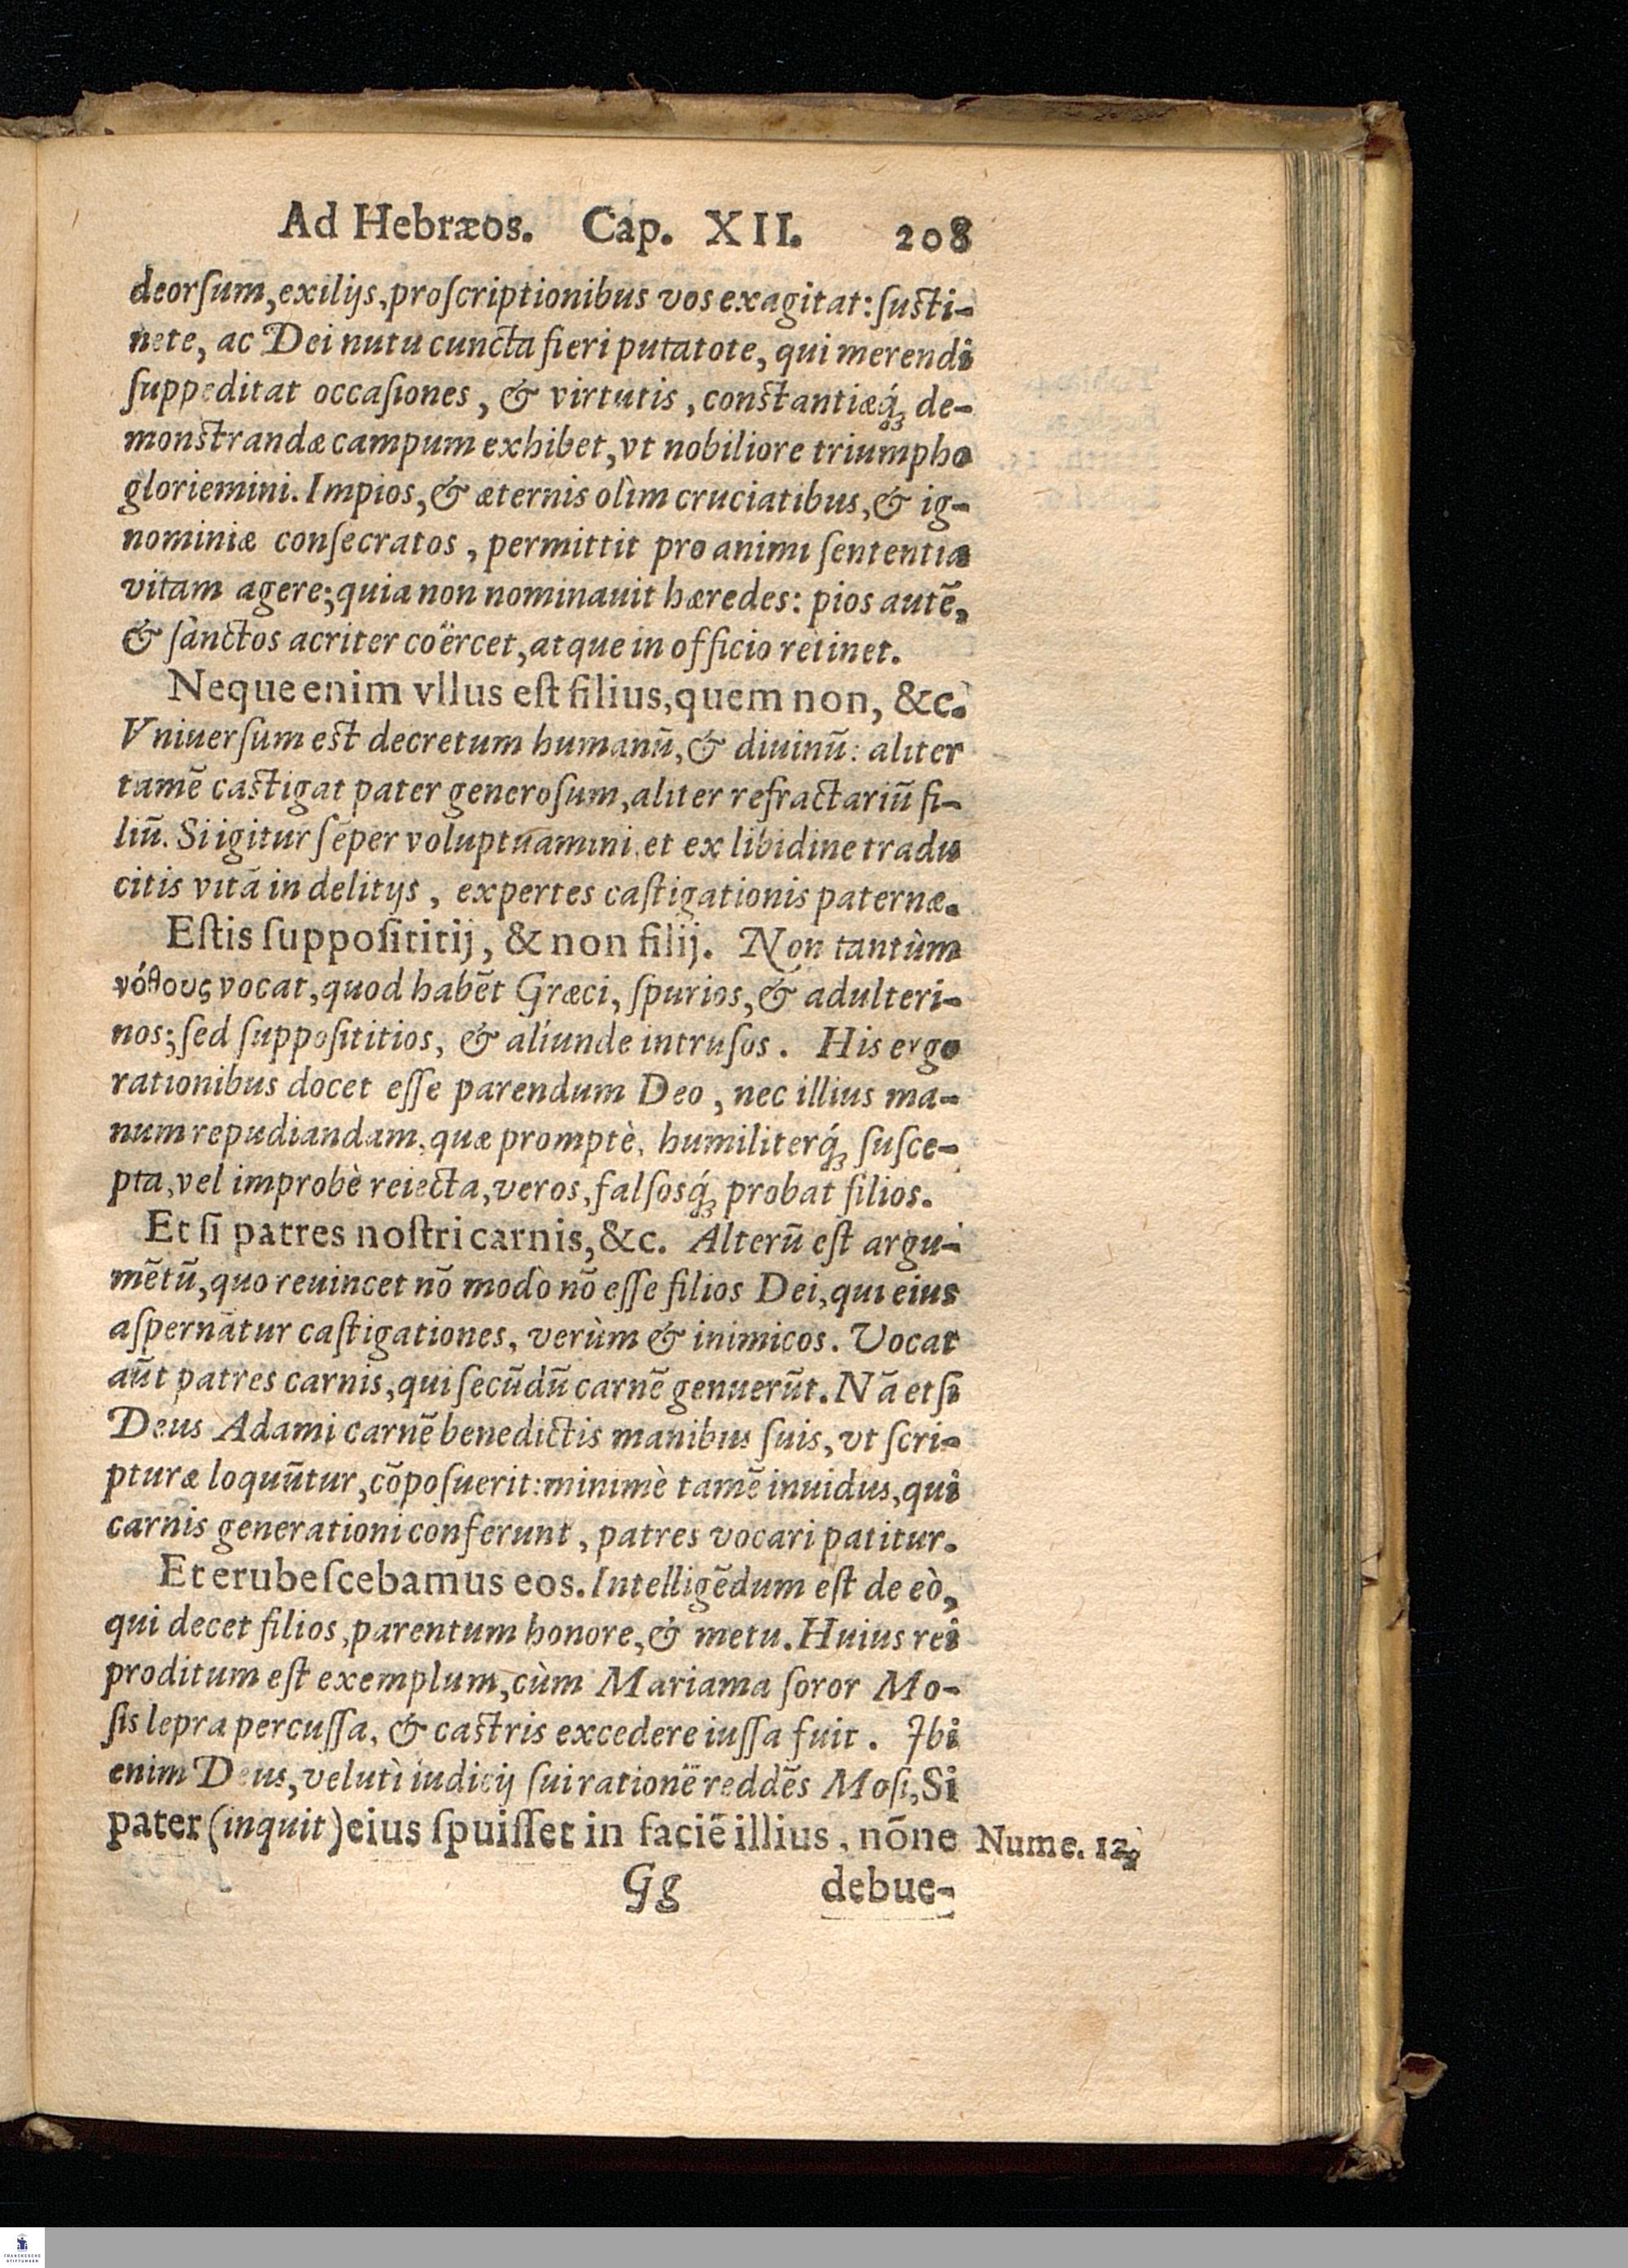 Ad Hebræos. Cap. XII. 208
deorſum, exilijs, proſcriptionibus vos exagitat: ſusti-
nete, ac Dei nutu cuncta fieri putatote, qui merendi
ſuppeditat occaſiones, & virtutis, constantiæq́ꝫ de-
monstrandæ campum exhibet, vt nobiliore triumpho
gloriemini. Impios, & æternis olìm cruciatibus, & ig-
nominiæ conſecratos, permittit pro animi ſententia
vitam agere; quia non nominauit hæredes: pios autē,
& ſànctos acriter coërcet, atque in officio retinet.
Neque enim vllus eſt filius, quem non, &c.
Vniuerſum est decretum humanū, & diuinū: aliter
tamē castigat pater generoſum, aliter refractariū fi-
liū. Si igitur ſēper voluptuamini, et ex libidine tradu
citis vitā in delitijs, expertes caſtigationis paternæ.
Eſtis ſuppoſititij, & non filij. Non tantùm
νόθους vocat, quod habēt Græci, ſpurios, & adulteri-
nos; ſed ſuppoſititios, & aliunde intruſos. His ergo
rationibus docet eſſe parendum Deo, nec illius ma-
num repudiandam, quæ promptè, humiliterq́ꝫ ſuſce-
pta, vel improbè reiecta, veros, falſosq́ꝫ probat filios.
Et ſi patres noſtri carnis, &c. Alterū eſt argu-
mētū, quo reuincet nō modò nō eſſe filios Dei, qui eius
aſpernātur caſtigationes, verùm & inimicos. Vocat
aūt patres carnis, qui ſecūdū carnē genuerūt. Nā et ſi
Deus Adami carnē benedictis manibus ſuis, vt ſcri-
pturæ loquūtur, cōpoſuerit: minimè tamē inuidus, qui
carnis generationi conferunt, patres vocari patitur.
Et erubeſcebamus eos. Intelligēdum eſt de eò,
qui decet filios, parentum honore, & metu. Huius rei
proditum eſt exemplum, cùm Mariama ſoror Mo-
ſis lepra percuſſa, & castris excedere iuſſa fuit. Ibi
enim Deus, velutì iudicij ſui rationē reddēs Moſi, Si
pater (inquit) eius ſpuiſſet in faciē illius, nōne
Nume. 12.
Gg debue-